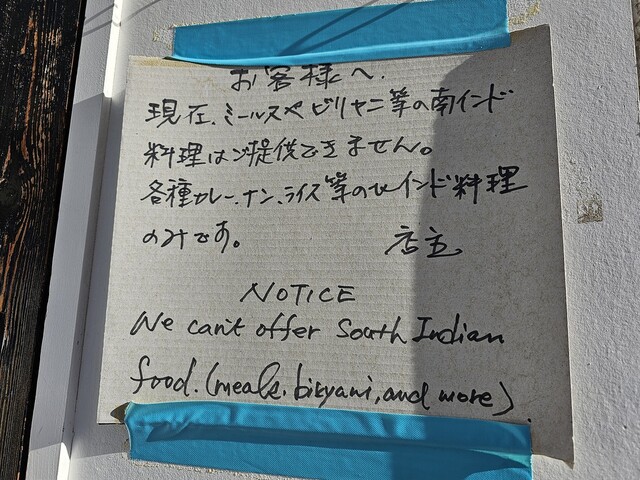 お客様へ.
現在、ミールスやビリヤニ等の南インド
料理はご提供できません。
各種カレー、ナン、ライス等の北インド料理
のみです。 店主
NOTICE
We can't offer South Indian
food. (meals, biryani, and more)